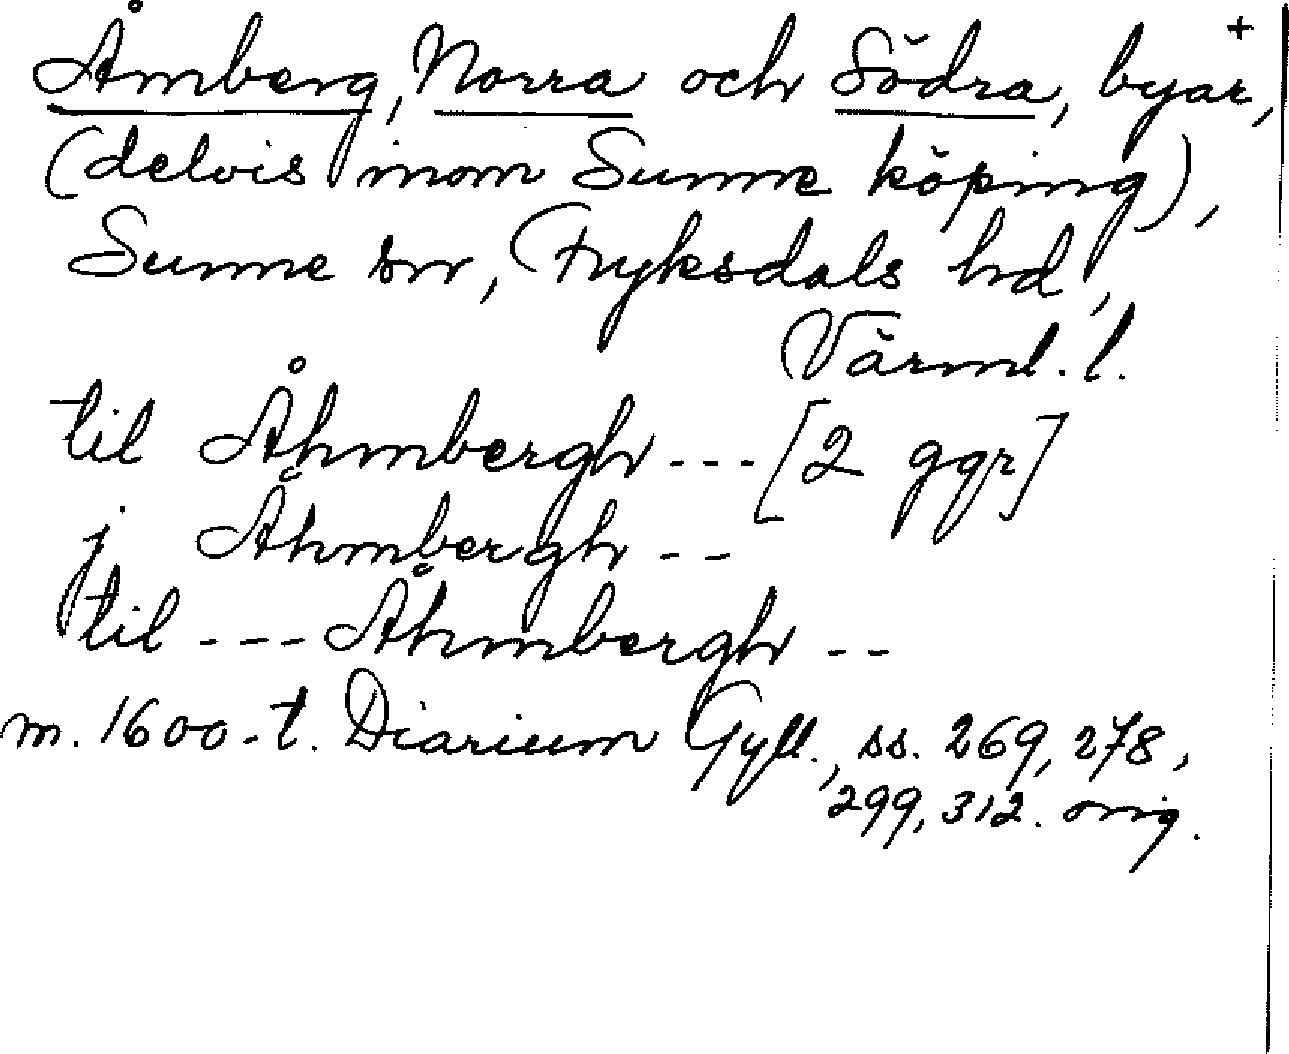 Åmberg, Norra och Södra, byar, +
(delvis inom Sunne köping),
Sunne sn, Fryksdals hd,
Värml. l.
til Åhmbergh --- [2 ggr]
j Åhmbergh --
til --- Åhmbergh --
m. 1600-t. Diarium Gyll., ss. 269, 278,
299, 312. orig.